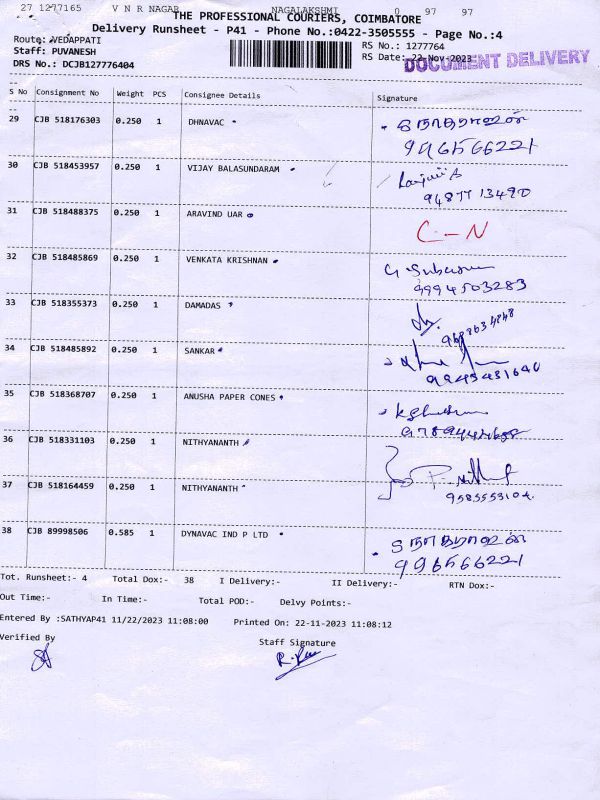 27 1277165 V N R NAGAR NAGALAKSHMI 0 97 97
THE PROFESSIONAL COURIERS, COIMBATORE
Delivery Runsheet - P41 - Phone No.:0422-3505555 - Page No.:4
Route: VEDAPPATI
RS No.: 1277764
Staff: PUVANESH
RS Date: 22-Nov-2023
DOCUMENT DELIVERY
DRS No.: DCJB127776404
S No Consignment No Weight PCS Consignee Details Signature
29 CJB 518176303 0.250 1 DHNAVAC
9965566221
30 CJB 518453957 0.250 1 VIJAY BALASUNDARAM
9487713490
31 CJB 518488375 0.250 1 ARAVIND UAR C-N
32 CJB 518485869 0.250 1 VENKATA KRISHNAN
9994503283
33 CJB 518355373 0.250 1 DAMADAS
34 CJB 518485892 0.250 1 SANKAR
35 CJB 518368707 0.250 1 ANUSHA PAPER CONES
36 CJB 518331103 0.250 1 NITHYANANTH
37 CJB 518164459 0.250 1 NITHYANANTH
9585553104
38 CJB 89998506 0.585 1 DYNAVAC IND P LTD
Tot. Runsheet:- 4 Total Dox:- 38 I Delivery:- II Delivery:- RTN Dox:-
Out Time:- In Time:- Total POD:- Delvy Points:-
Entered By :SATHYAP41 11/22/2023 11:08:00 Printed On: 22-11-2023 11:08:12
Verified By Staff Signature